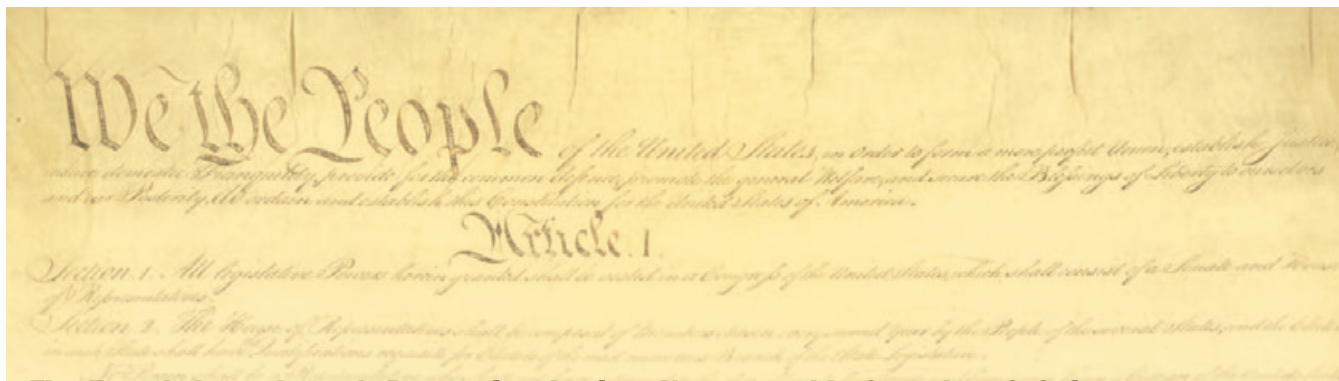 We the People of the United States, in Order to form a more perfect Union, establish Justice,
insure domestic Tranquility, provide for the common defence, promote the general Welfare, and secure the Blessings of Liberty to ourselves
and our Posterity, do ordain and establish this Constitution for the United States of America.
Article. I.
Section. 1. All legislative Powers herein granted shall be vested in a Congress of the United States, which shall consist of a Senate and House
of Representatives.
Section. 2. The House of Representatives shall be composed of Members chosen every second Year by the People of the several States, and the
in each State shall have Qualifications requisite for Electors of the most numerous Branch of the State Legislature.